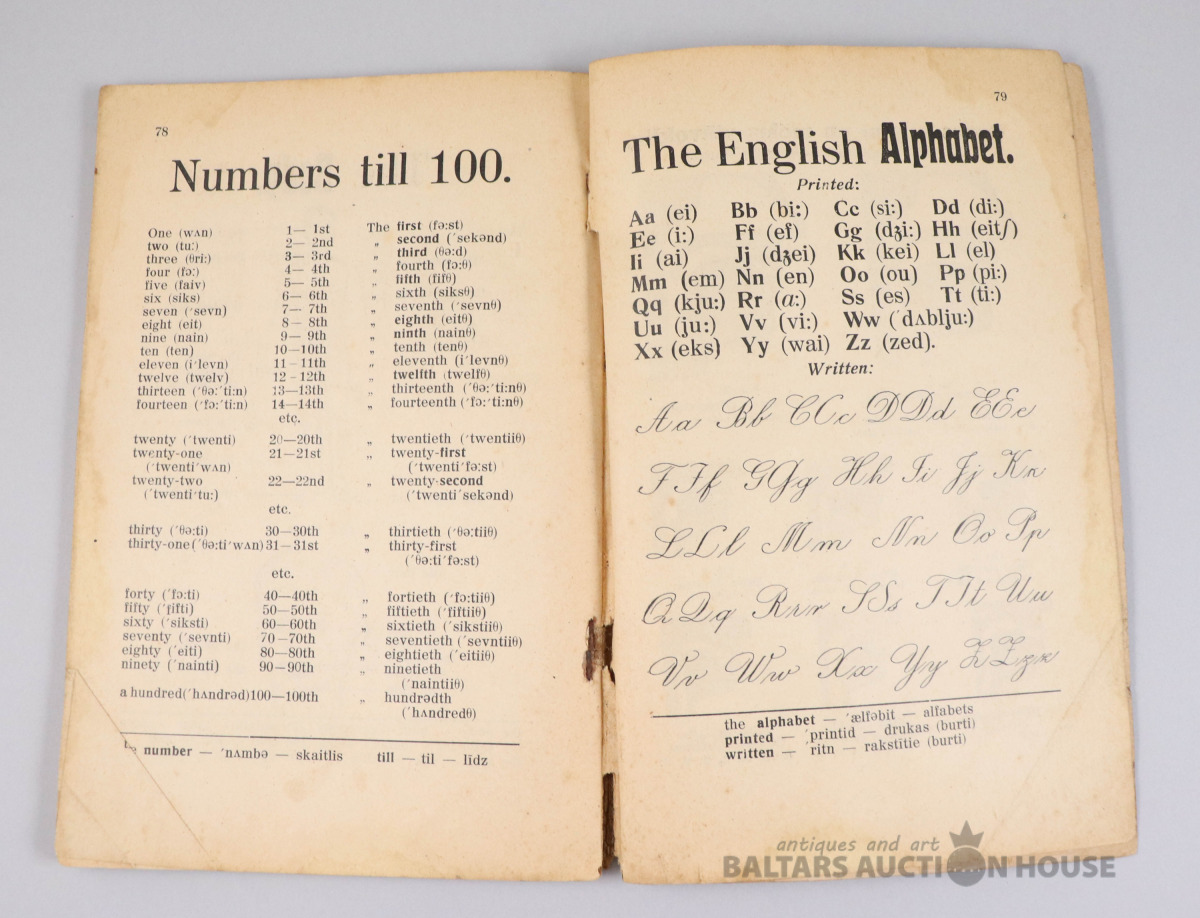 78
Numbers till 100.
One (wʌn) 1— 1st The first (fə:st)
two (tu:) 2— 2nd „ second (ˈsekənd)
three (θri:) 3— 3rd „ third (θə:d)
four (fɔ:) 4— 4th „ fourth (fɔ:θ)
five (faiv) 5— 5th „ fifth (fifθ)
six (siks) 6— 6th „ sixth (siksθ)
seven (ˈsevn) 7— 7th „ seventh (ˈsevnθ)
eight (eit) 8— 8th „ eighth (eitθ)
nine (nain) 9— 9th „ ninth (nainθ)
ten (ten) 10—10th „ tenth (tenθ)
eleven (iˈlevn) 11—11th „ eleventh (iˈlevnθ)
twelve (twelv) 12—12th „ twelfth (twelfθ)
thirteen (ˈθə:ˈti:n) 13—13th „ thirteenth (ˈθə:ˈti:nθ)
fourteen (ˈfɔ:ˈti:n) 14—14th „ fourteenth (ˈfɔ:ˈti:nθ)
etc.
twenty (ˈtwenti) 20—20th „ twentieth (ˈtwentiiθ)
twenty-one 21—21st „ twenty-first
(ˈtwentiˈwʌn) (ˈtwentiˈfə:st)
twenty-two 22—22nd „ twenty-second
(ˈtwentiˈtu:) (ˈtwentiˈsekənd)
etc.
thirty (ˈθə:ti) 30—30th „ thirtieth (ˈθə:tiiθ)
thirty-one (ˈθə:tiˈwʌn) 31—31st „ thirty-first
(ˈθə:tiˈfə:st)
etc.
forty (ˈfɔ:ti) 40—40th „ fortieth (ˈfɔ:tiiθ)
fifty (ˈfifti) 50—50th „ fiftieth (ˈfiftiiθ)
sixty (ˈsiksti) 60—60th „ sixtieth (ˈsikstiiθ)
seventy (ˈsevnti) 70—70th „ seventieth (ˈsevntiiθ)
eighty (ˈeiti) 80—80th „ eightieth (ˈeitiiθ)
ninety (ˈnainti) 90—90th „ ninetieth
(ˈnaintiiθ)
a hundred (ˈhʌndrəd) 100—100th „ hundrədth
(ˈhʌndredθ)
the number — ˈnʌmbə — skaitlis till — til — līdz
79
The English Alphabet.
Printed:
Aa (ei) Bb (bi:) Cc (si:) Dd (di:)
Ee (i:) Ff (ef) Gg (dʒi:) Hh (eitʃ)
Ii (ai) Jj (dʒei) Kk (kei) Ll (el)
Mm (em) Nn (en) Oo (ou) Pp (pi:)
Qq (kju:) Rr (ɑ:) Ss (es) Tt (ti:)
Uu (ju:) Vv (vi:) Ww (ˈdʌblju:)
Xx (eks) Yy (wai) Zz (zed).
Written:
Aa Bb CCc DDd EEe
FFf GGg Hh Ii Jj Kk
LLl Mm Nn Oo Pp
QQq Rrr SSs TTt Uu
Vv Ww Xx Yy ZZzz
the alphabet — ˈælfəbit — alfabets
printed — ˈprintid — drukas (burti)
written — ˈritn — rakstītie (burti)
antiques and art
BALTARS AUCTION HOUSE